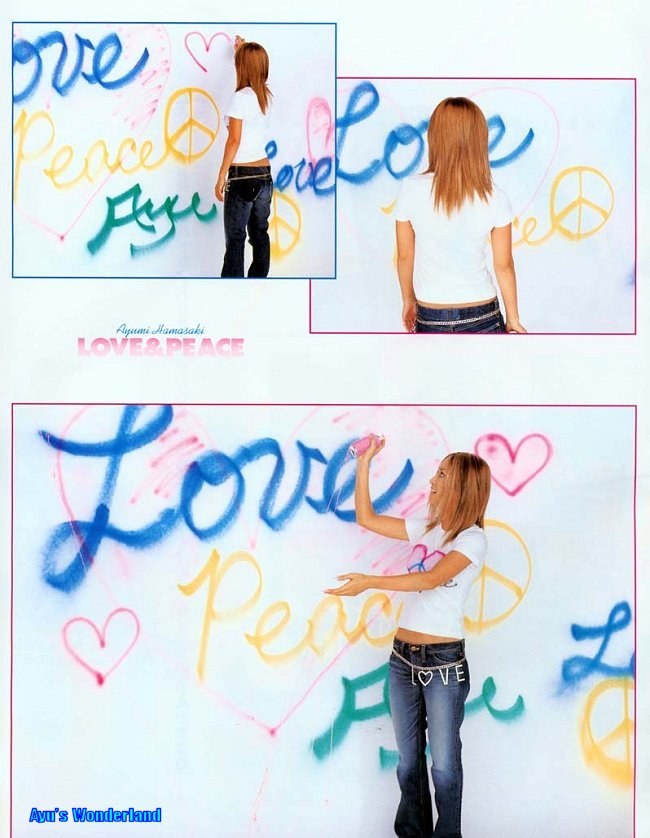 Love
Peace
Ayu
Love
Love
Ayumi Hamasaki
LOVE&PEACE
Love
Peace
LOVE
Ayu's Wonderland